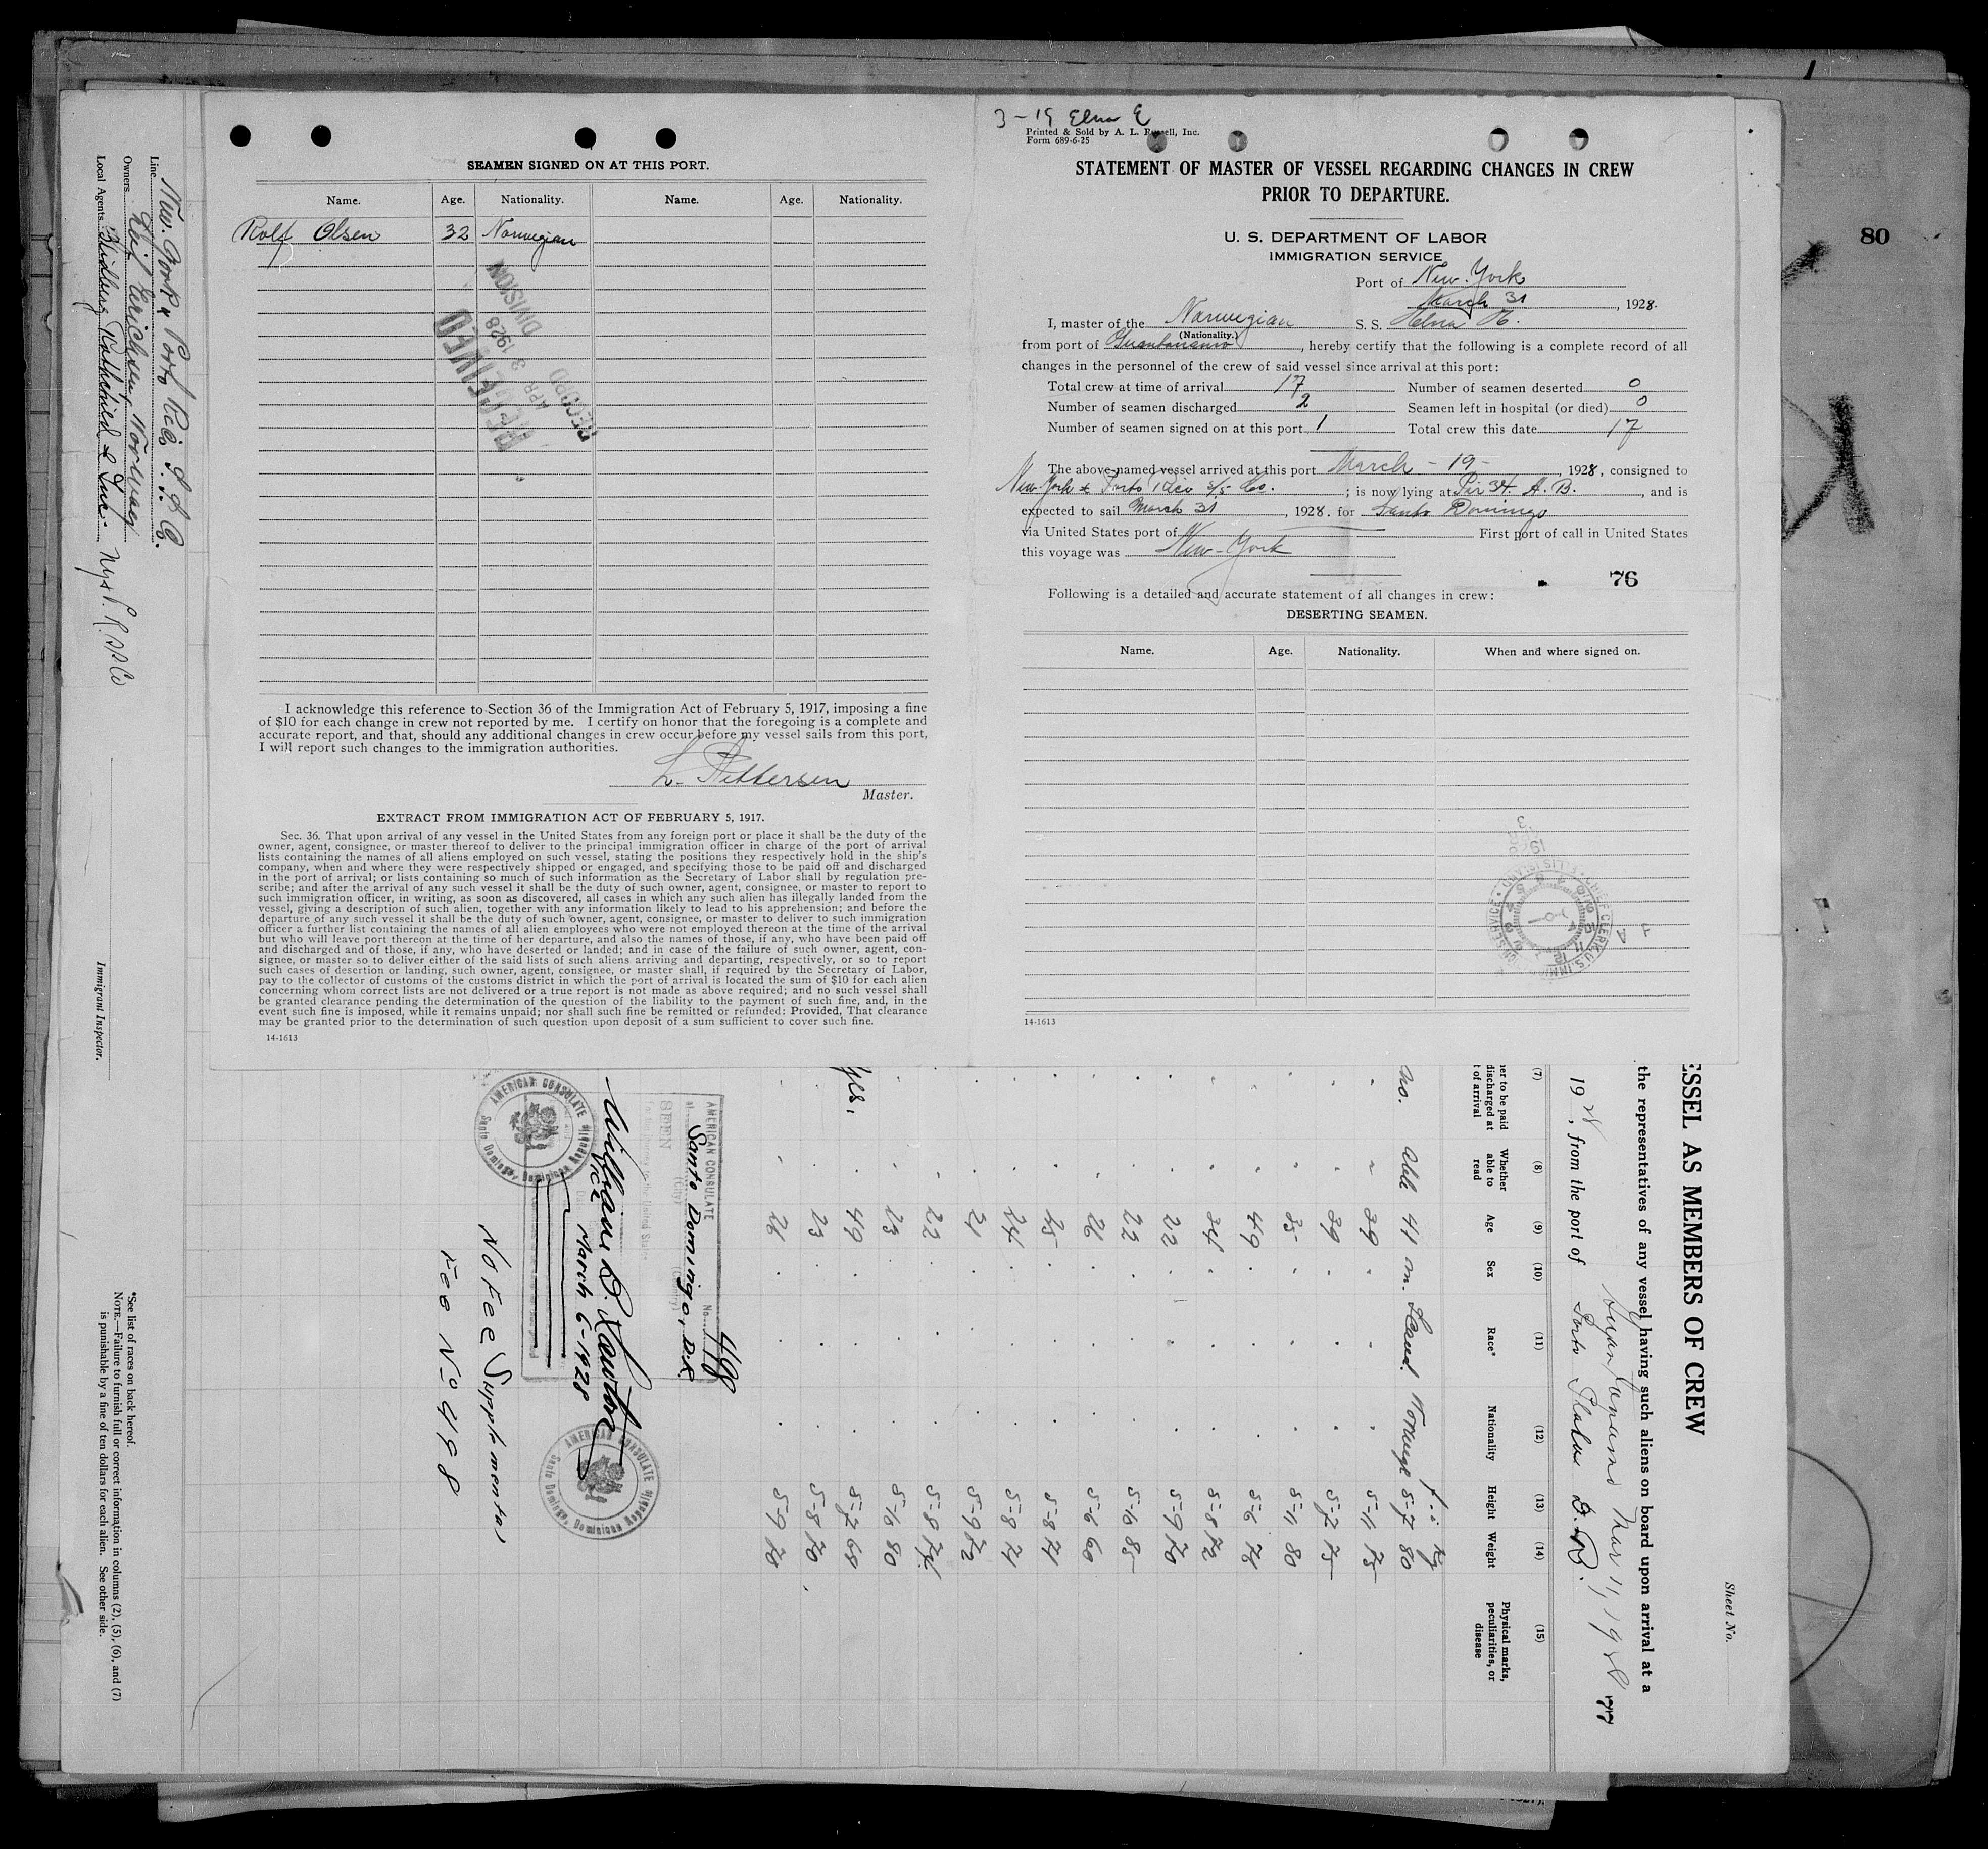 SEAMEN SIGNED ON AT THIS PORT.
Name. Age. Nationality. Name. Age. Nationality.
Rolf Olsen 32 Norwegian
RECEIVED
APR 3 1928
RECORD DIVISION
I acknowledge this reference to Section 36 of the Immigration Act of February 5, 1917, imposing a fine
of $10 for each change in crew not reported by me. I certify on honor that the foregoing is a complete and
accurate report, and that, should any additional changes in crew occur before my vessel sails from this port,
I will report such changes to the immigration authorities.
L. Pettersen
Master.
EXTRACT FROM IMMIGRATION ACT OF FEBRUARY 5, 1917.
Sec. 36. That upon arrival of any vessel in the United States from any foreign port or place it shall be the duty of the
owner, agent, consignee, or master thereof to deliver to the principal immigration officer in charge of the port of arrival
lists containing the names of all aliens employed on such vessel, stating the positions they respectively hold in the ship's
company, when and where they were respectively shipped or engaged, and specifying those to be paid off and discharged
in the port of arrival; or lists containing so much of such information as the Secretary of Labor shall by regulation pre-
scribe; and after the arrival of any such vessel it shall be the duty of such owner, agent, consignee, or master to report to
such immigration officer, in writing, as soon as discovered, all cases in which any such alien has illegally landed from the
vessel, giving a description of such alien, together with any information likely to lead to his apprehension; and before the
departure of any such vessel it shall be the duty of such owner, agent, consignee, or master to deliver to such immigration
officer a further list containing the names of all alien employees who were not employed thereon at the time of the arrival
but who will leave port thereon at the time of her departure, and also the names of those, if any, who have been paid off
and discharged and of those, if any, who have deserted or landed; and in case of the failure of such owner, agent, con-
signee, or master so to deliver either of the said lists of such aliens arriving and departing, respectively, or so to report
such cases of desertion or landing, such owner, agent, consignee, or master shall, if required by the Secretary of Labor,
pay to the collector of customs of the customs district in which the port of arrival is located the sum of $10 for each alien
concerning whom correct lists are not delivered or a true report is not made as above required; and no such vessel shall
be granted clearance pending the determination of the question of the liability to the payment of such fine, and, in the
event such fine is imposed, while it remains unpaid; nor shall such fine be remitted or refunded: Provided, That clearance
may be granted prior to the determination of such question upon deposit of a sum sufficient to cover such fine.
14-1613
3-19 Elna E
Printed & Sold by A. L. Russell, Inc.
Form 689-6-25
STATEMENT OF MASTER OF VESSEL REGARDING CHANGES IN CREW
PRIOR TO DEPARTURE.
U. S. DEPARTMENT OF LABOR
IMMIGRATION SERVICE
Port of New York
March 31, 1928.
I, master of the Norwegian S. S. Elna E.
(Nationality.)
from port of Guantanamo, hereby certify that the following is a complete record of all
changes in the personnel of the crew of said vessel since arrival at this port:
Total crew at time of arrival 17 Number of seamen deserted 0
Number of seamen discharged 2 Seamen left in hospital (or died) 0
Number of seamen signed on at this port 1 Total crew this date 17
The above-named vessel arrived at this port March - 19 -, 1928, consigned to
New York & Porto Rico S/S Co.; is now lying at Pir 34 A. B., and is
expected to sail March 31, 1928. for Santo Domingo
via United States port of First port of call in United States
this voyage was New-York
76
Following is a detailed and accurate statement of all changes in crew:
DESERTING SEAMEN.
Name. Age. Nationality. When and where signed on.
CHIEF CLERK, U.S. IMMIGRATION SERVICE ELLIS ISLAND
14-1613
80
Line New York & Porto Rico S. S. Co.
Owners Leif Erichsen, Norway
Local Agents
Immigrant Inspector.
*See list of races on back hereof.
NOTE.—Failure to furnish full or correct information in columns (2), (5), (6), and (7)
is punishable by a fine of ten dollars for each alien. See other side.
Sheet No.
ESSEL AS MEMBERS OF CREW
the representatives of any vessel having such aliens on board upon arrival at a
Guantanamo Mar 11, 1928
77
1928, from the port of Porto Plata D.R.
(7) (8) (9) (10) (11) (12) (13) (14) (15)
her to be paid discharged at t of arrival
Whether able to read
Age
Sex
Race*
Nationality
Height
Weight
Physical marks, peculiarities, or disease
f. i. Kg
no. all 41 m. Scand. Norweg 5-7 80
39 5-11 75
39 5-7 75
35 5-11 80
49 5-6 76
34 5-8 72
22 5-9 70
22 5-10 85
26 5-6 60
25 5-8 71
24 5-8 71
21 5-9 72
22 5-8 74
23 5-10 80
yes. 49 5-7 68
23 5-8 70
26 5-9 70
AMERICAN CONSULATE
No. 498
at Santo Domingo, D.R.
(City) (Country)
SEEN
William B. Lawton
Vice
March 6-1928
AMERICAN CONSULATE
Santo Domingo, Dominican Republic
AMERICAN CONSULATE
Santo Domingo, Dominican Republic
No Fee Supplemental
Fee No 498